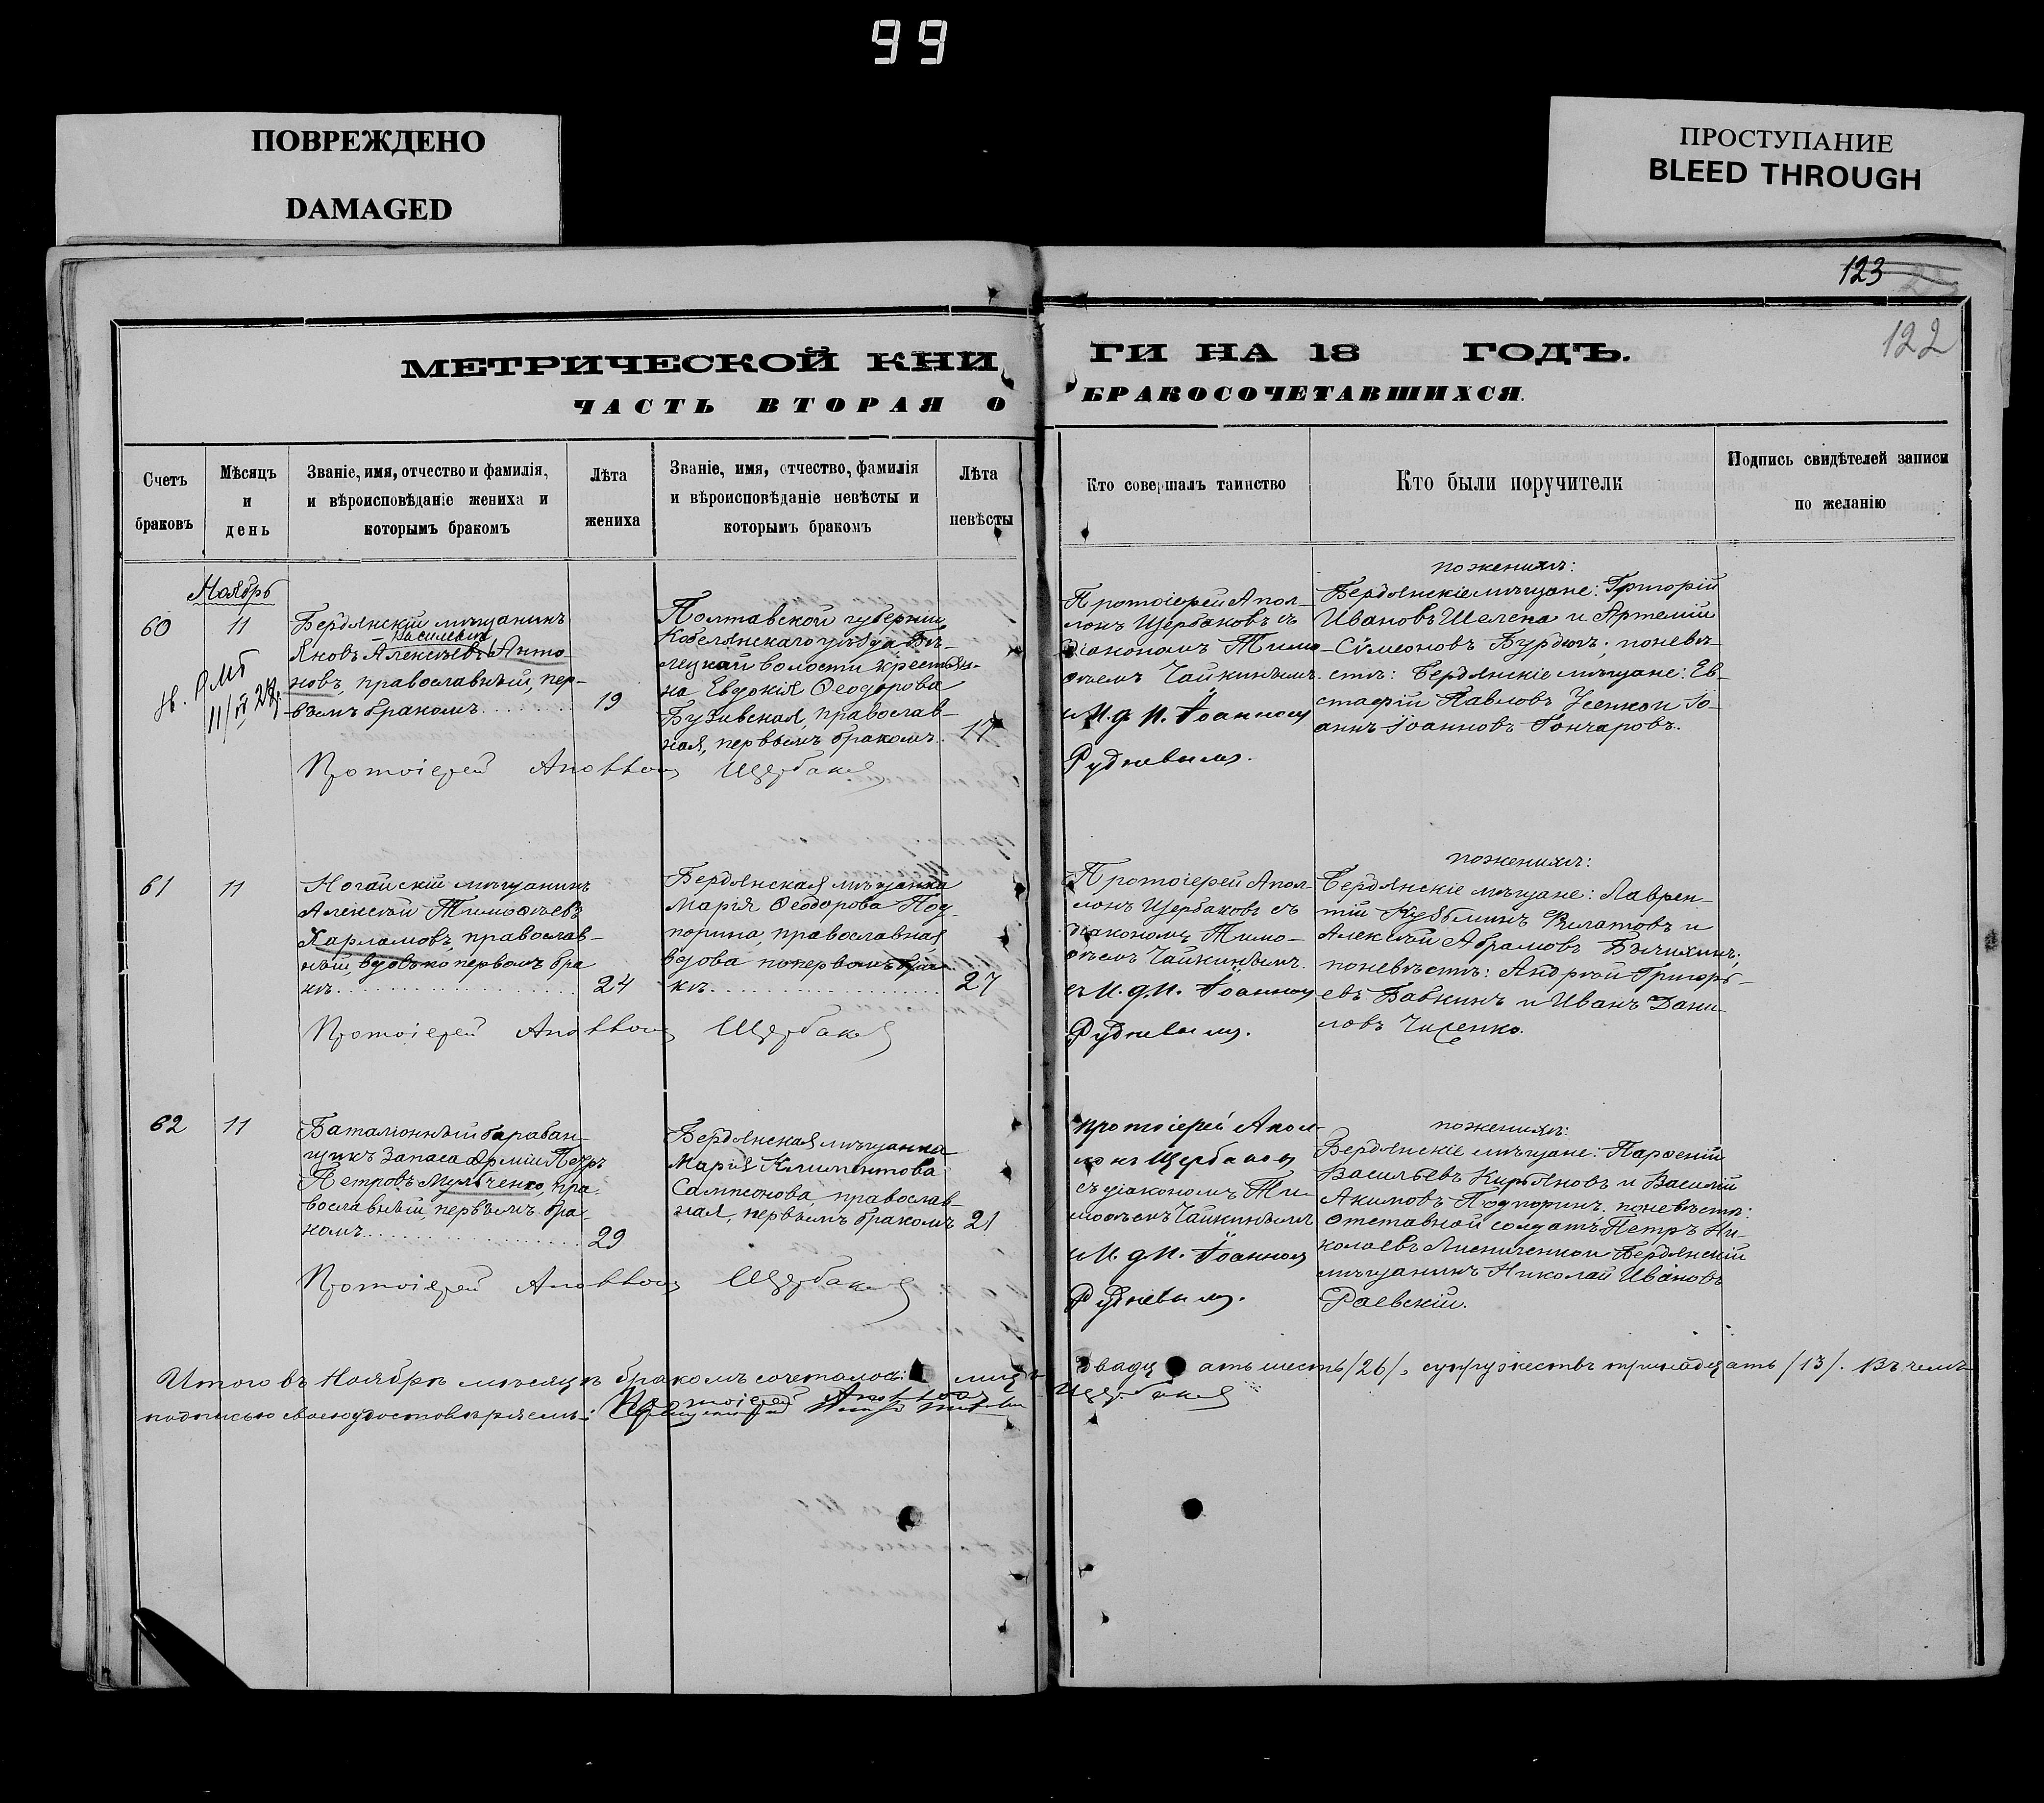 99
ПОВРЕЖДЕНО
DAMAGED
ПРОСТУПАНИЕ
BLEED THROUGH
123
122
МЕТРИЧЕСКОЙ КНИ
ГИ НА 18 ГОДЪ.
ЧАСТЬ ВТОРАЯ О
БРАКОСОЧЕТАВШИХСЯ.
Счетъ
браковъ
Мѣсяцъ
и
день
Званіе, имя, отчество и фамилія,
и вѣроисповѣданіе жениха и
которымъ бракомъ
Лѣта
жениха
Званіе, имя, отчество, фамилія
и вѣроисповѣданіе невѣсты и
которымъ бракомъ
Лѣта
невѣсты
Кто совершалъ таинство
Кто были поручители
Подпись свидѣтелей записи
по желанію
Ноябрь
60
11
Бердянскій мѣщанинъ
Яковъ Алексѣевъ Анто-
новъ, православный, пер-
вымъ бракомъ
19
Полтавской губерніи
Кобелянскаго уѣзда Бѣ-
лецкой волости крестьян-
ка Евдокія Ѳеодорова
Бузивская, православ-
ная, первымъ бракомъ.
17
Протоіерей Апол-
лонъ Щербаковъ съ
діакономъ Тимо-
ѳеемъ Чайкинымъ
и И. д. П. Іоанномъ
Рудневымъ.
по женихѣ:
Бердянскіе мѣщане: Григорій
Ивановъ Шелепа и Артемій
Сѵмеоновъ Бурдюгъ; по невѣ-
стѣ: Бердянскіе мѣщане: Ев-
стафій Павловъ Усенко и Іо-
аннъ Іоанновъ Гончаровъ.
Протоіерей Аполлонъ Щербаковъ
61
11
Ногайскій мѣщанинъ
Алексѣй Тимоѳеевъ
Харламовъ, православ-
ный, вдовъ по первомъ бра
кѣ
24
Бердянская мѣщанка
Марія Ѳеодорова Под-
порина, православная
вдова по первомъ бра
кѣ
27
Протоіерей Апол-
лонъ Щербаковъ съ
діакономъ Тимо-
ѳеемъ Чайкинымъ
и И. д. П. Іоанномъ
Рудневымъ.
по женихѣ:
Бердянскіе мѣщане: Лаврен-
тій Кузьминъ Филатовъ и
Алексѣй Абрамовъ Бычихинъ;
по невѣстѣ: Андрей Григорь-
евъ Бабкинъ и Иванъ Дани-
ловъ
Протоіерей Аполлонъ Щербаковъ
62
11
Баталіонный барабан-
щикъ запаса Арміи Петръ
Петровъ Мульченко, пра-
вославный, первымъ бра-
комъ
29
Бердянская мѣщанка
Марія Климентова
Сампсонова, православ-
ная, первымъ бракомъ
21
Протоіерей Апол-
лонъ Щербаковъ
съ діакономъ Ти-
моѳеемъ Чайкинымъ
и И. д. П. Іоанномъ
Рудневымъ.
по женихѣ:
Бердянскіе мѣщане: Парѳеній
Васильевъ Кирьяновъ и Василій
Акимовъ Подпоринъ. по невѣстѣ:
отставной солдатъ Петръ Ни-
колаевъ Лисиченко и Бердянскій
мѣщанинъ Николай Ивановъ
Раевскій.
Протоіерей Аполлонъ Щербаковъ
Итого въ Ноябрѣ мѣсяцѣ бракомъ сочеталось: лицъ двадцать шесть /26/, супружествъ тринадцать /13/. Въ чемъ
подписью своею удостовѣряемъ: Протоіерей Аполлонъ Щербаковъ